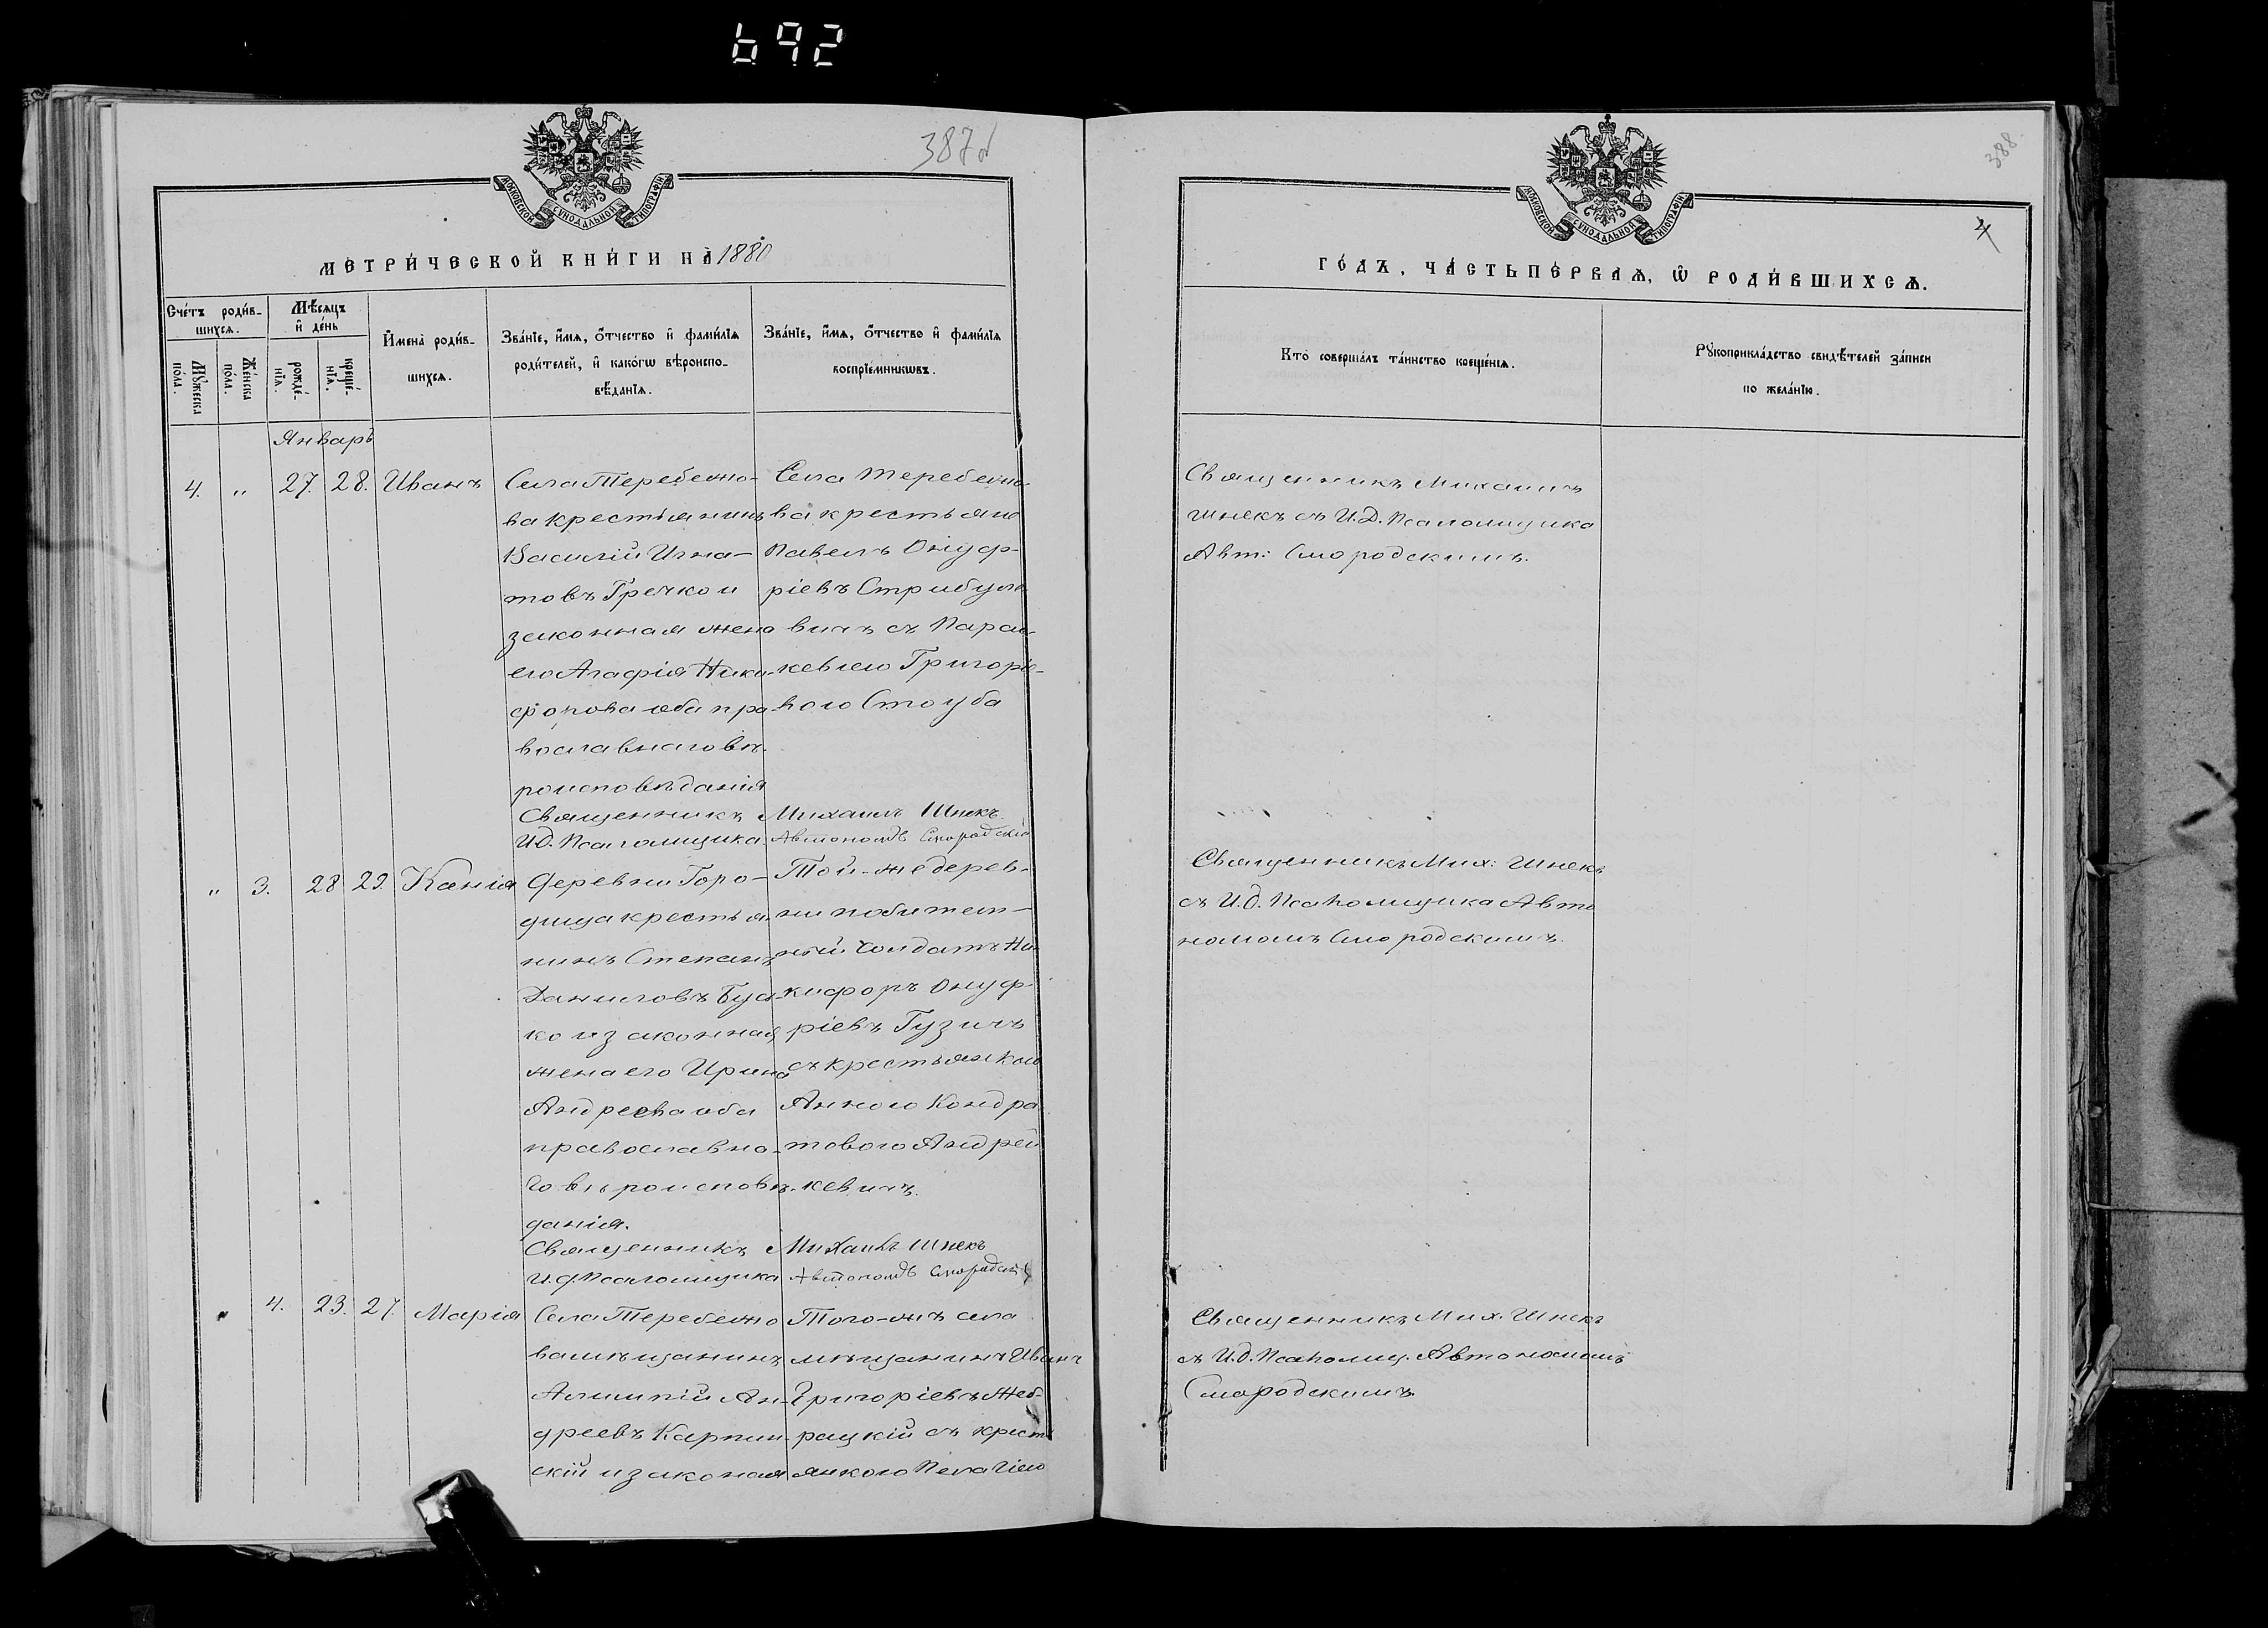 692
387об
МОСКОВСКОЙ СѴНОДАЛЬНОЙ ТИПОГРАФІИ
МЕТРИ́ЧЕСКОЙ КНИ́ГИ НА̀ 1880
Сче́тъ роди́в-
шихсѧ.
Мѣ́сѧцъ
и҆ де́нь
Мꙋ́жеска
по́ла.
Же́нска
по́ла.
рожде́-
нїѧ.
креще́-
нїѧ.
И҆мена̀ роди́в-
шихсѧ.
Зва́нїе, и҆́мѧ, ѻ҆́тчество и҆ фами́лїѧ
роди́телей, и҆ како́гѡ вѣроиспо-
вѣ́данїѧ.
Зва́нїе, и҆́мѧ, ѻ҆́тчество и҆ фами́лїѧ
воспрїе́мникѡвъ.
Январь
4. " 27. 28. Иванъ
Села Теребежо-
ва крестьянинъ
Василій Игна-
товъ Гречко и
законная жена
его Агафія Ники-
форова оба пра-
вославнаго вѣ-
роисповѣданія
Села Теребежо-
ва крестьяне
Павелъ Онуф-
ріевъ Стрибуле-
вичъ съ Парас-
кевіею Григоріе-
вою Столуба
Священникъ Михаилъ Шнекъ.
И.д. Псаломщика Автономъ Смородскій
" 3. 28 29. Ксенія
Деревни Горо-
дища крестья-
нинъ Степанъ
Даниловъ
ко и законная
жена его Ирина
Андреева оба
православна-
го вѣроисповѣ-
данія.
Той-же дерев-
ни
ный солдатъ Ни-
кифоръ Онуф-
ріевъ Гузичъ
съ крестьянкою
Анною Кондра-
товою Андрей-
кевичъ.
Священникъ Михаилъ Шнекъ
И.д. Псаломщика Автономъ Смородскій
" 4. 23. 27. Марія
Села Теребежо
ва мѣщанинъ
Алимпій Ан-
дреевъ Карпин-
скій и законая
Того-жъ села
мѣщанинъ Иванъ
Григоріевъ Жеб-
рацкій съ кресть
янкою Пелагіею
388
МОСКОВСКОЙ СѴНОДАЛЬНОЙ ТИПОГРАФІИ
4
ГО́ДЪ, ЧА́СТЬ ПЕ́РВАѦ, Ѡ҆ РОДИ́ВШИХСѦ.
Кто̀ соверша́лъ та́инство креще́нїѧ.
Рꙋкоприкла́дство свидѣ́телей за́писи
по жела́нїю.
Священникъ Михаилъ
Шнекъ съ И.Д. Псаломщика
Авт: Смородскимъ.
Священникъ Мих: Шнекъ
съ И.д. Псаломщика Авто
номомъ Смородскимъ.
Священникъ Мих. Шнекъ
съ И.д. Псаломщ. Автономомъ
Смородскимъ